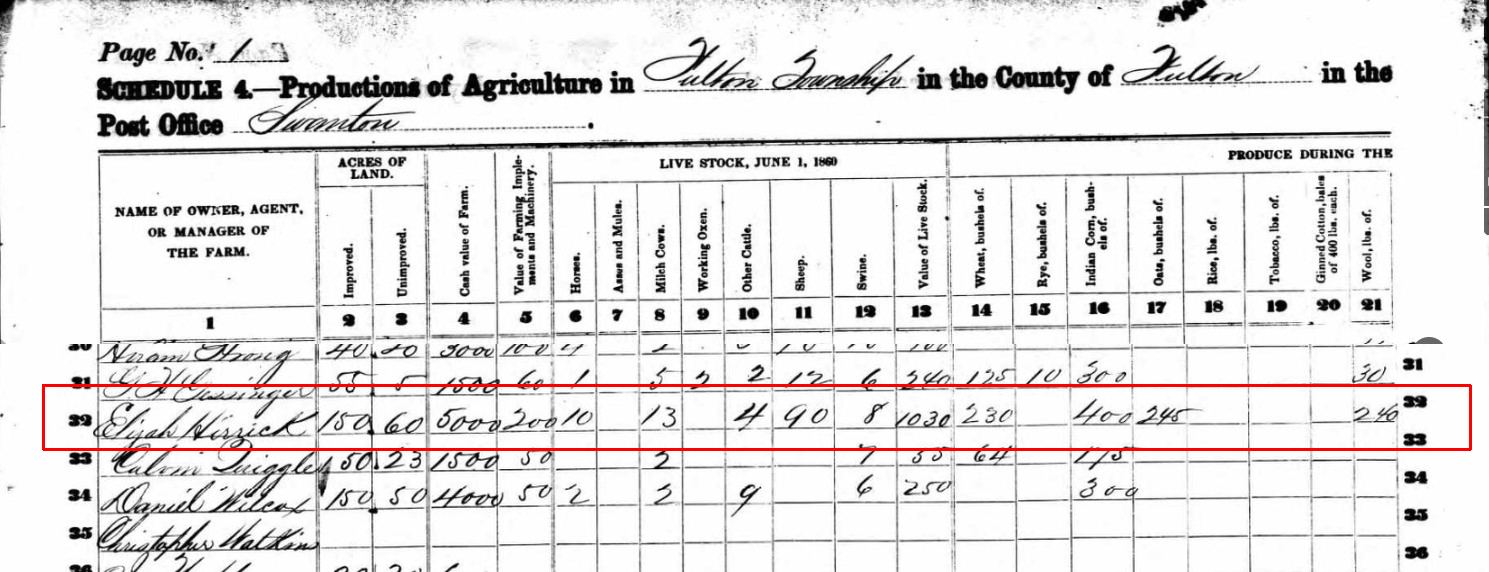 Page No. 1
SCHEDULE 4.—Productions of Agriculture in Fulton Township in the County of Fulton in the
Post Office Swanton.
NAME OF OWNER, AGENT, OR MANAGER OF THE FARM.
ACRES OF LAND.
Improved.
Unimproved.
Cash value of Farm.
Value of Farming Implements and Machinery.
LIVE STOCK, JUNE 1, 1860
Horses.
Asses and Mules.
Milch Cows.
Working Oxen.
Other Cattle.
Sheep.
Swine.
Value of Live Stock.
PRODUCE DURING THE
Wheat, bushels of.
Rye, bushels of.
Indian Corn, bushels of.
Oats, bushels of.
Rice, lbs. of.
Tobacco, lbs. of.
Ginned Cotton, bales of 400 lbs. each.
Wool, lbs. of.
1 2 3 4 5 6 7 8 9 10 11 12 13 14 15 16 17 18 19 20 21
Hiram Strong 40 3000 100
31 G H 55 5 1500 60 1 5 2 2 12 6 240 125 10 300 30 31
32 Elijah Hirrick 150 60 5000 200 10 13 4 90 8 1030 230 400 245 240 32
33 Calvin Quiggle 50 23 1500 50 2 7 55 64 175 33
34 Daniel Wilcox 150 50 4000 50 2 2 9 6 250 300 34
35 Christopher Watkins 35
36